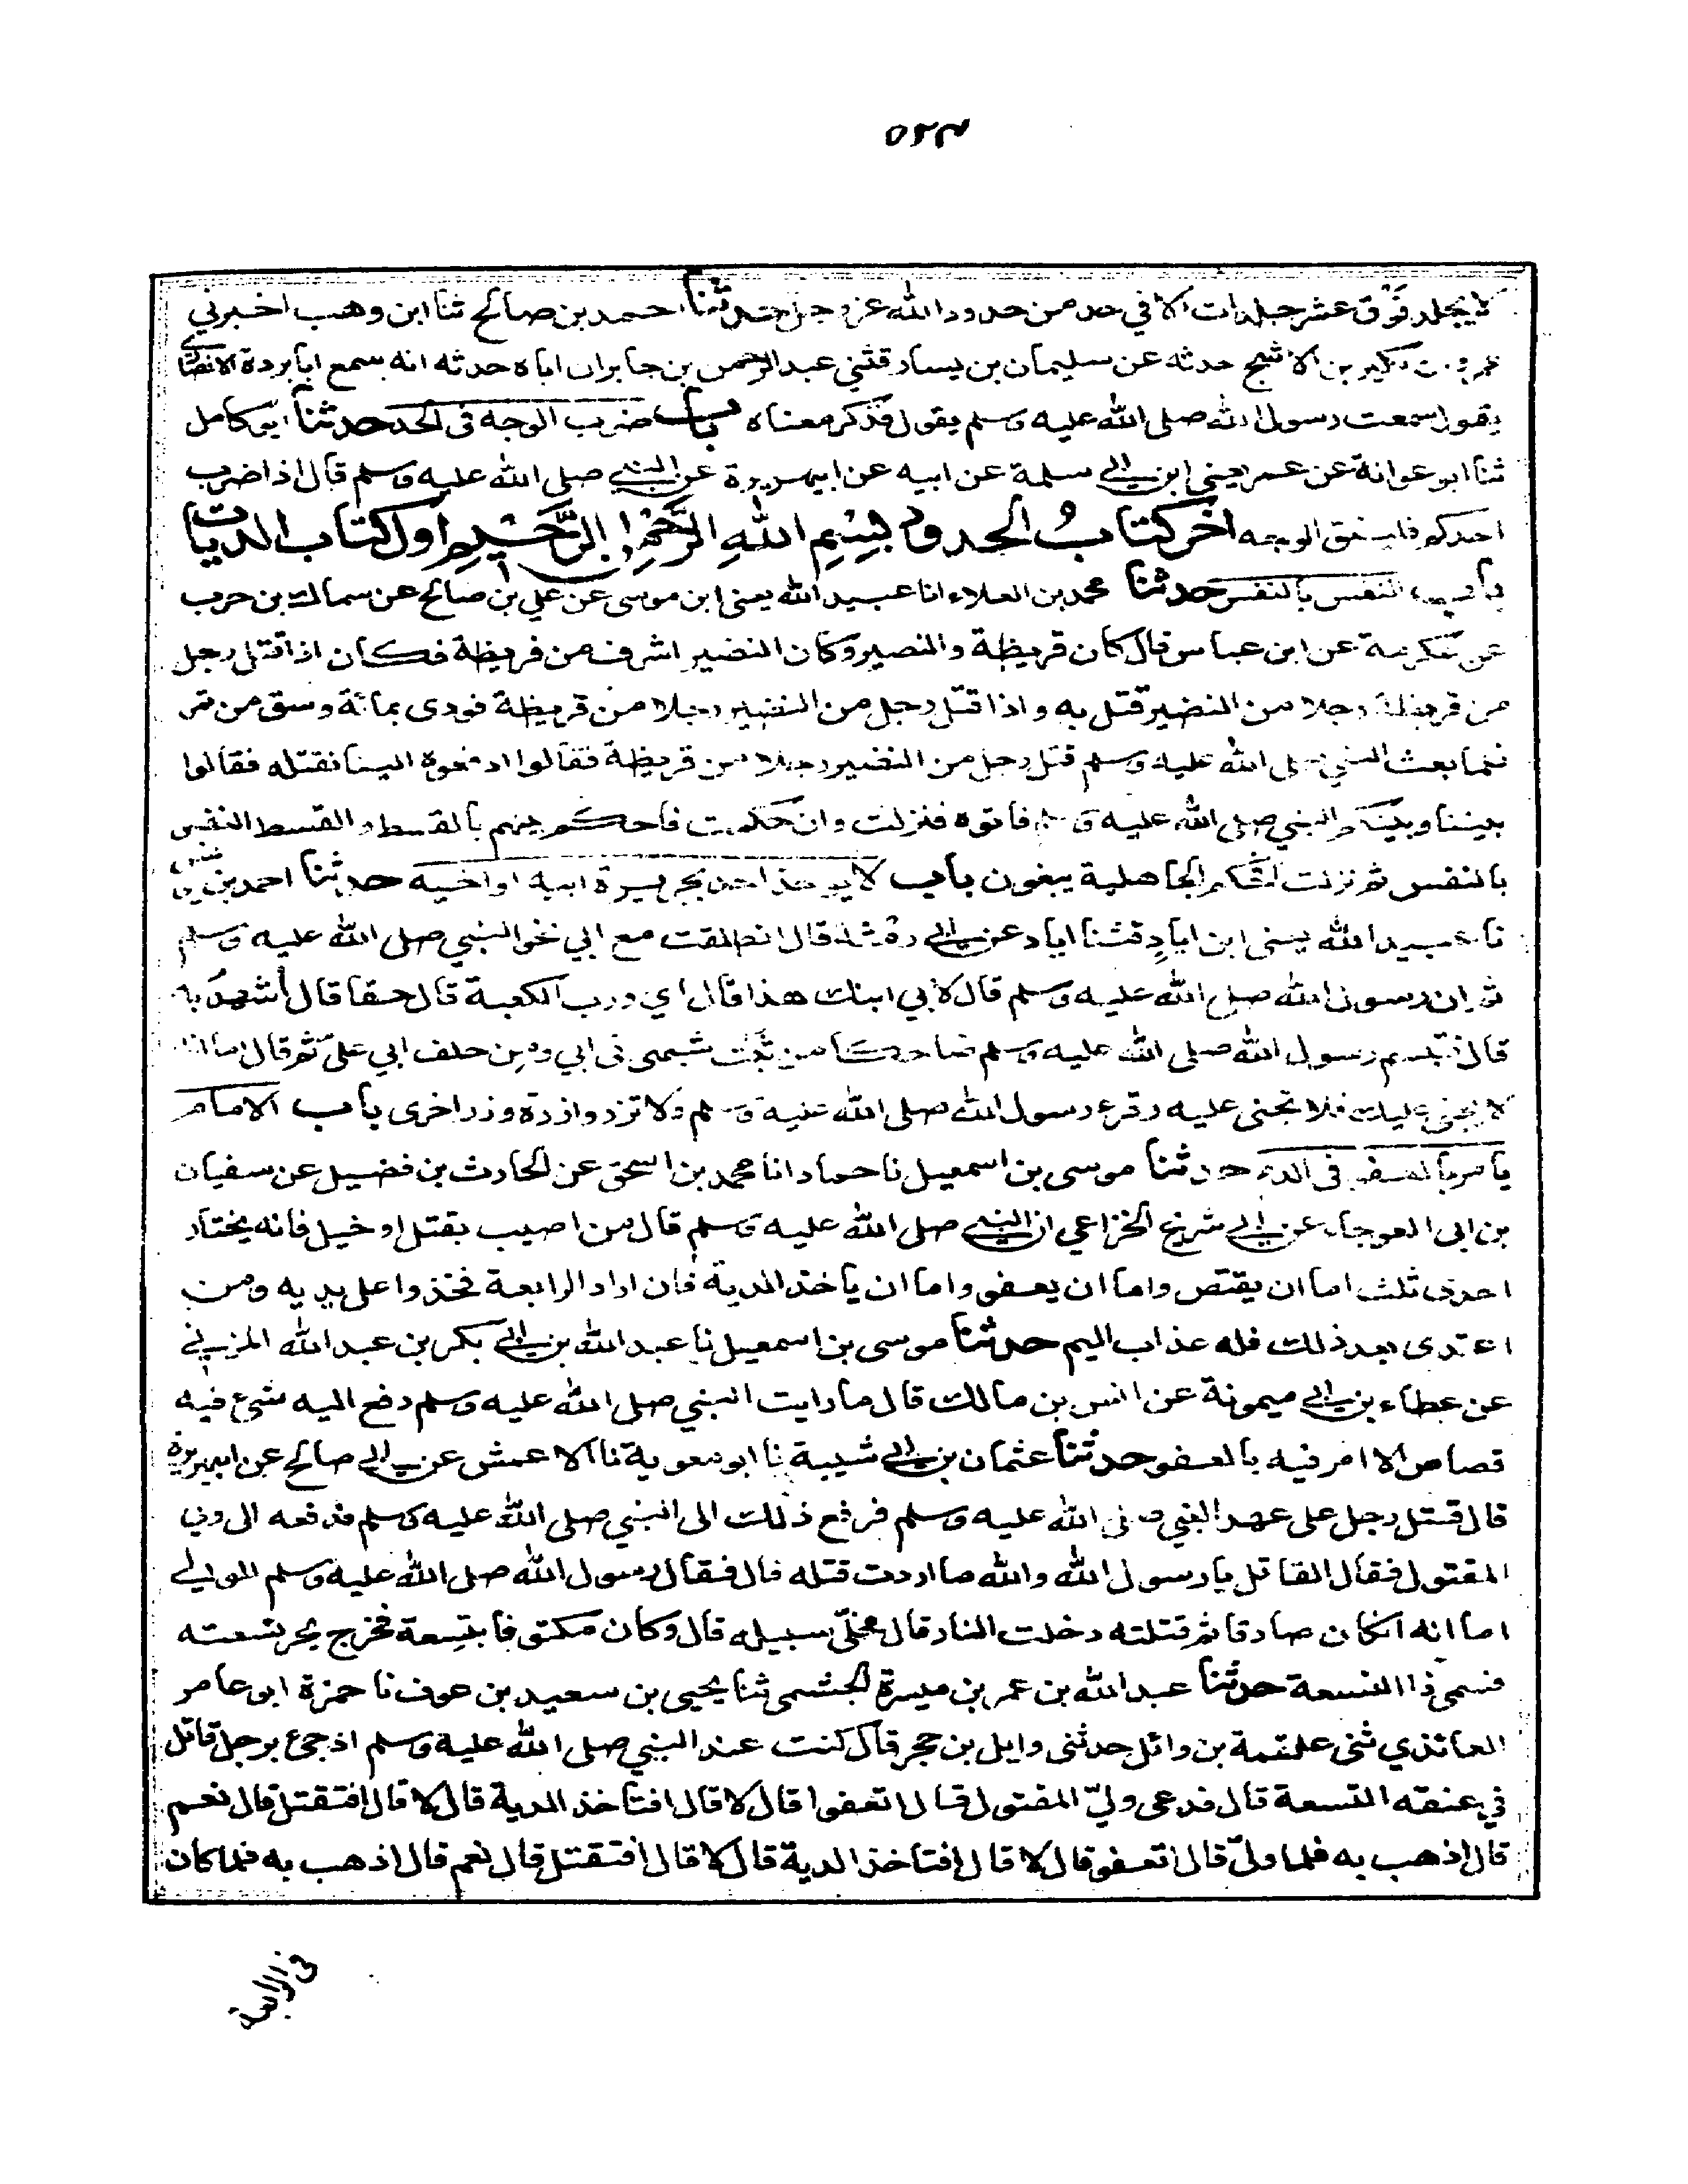 لا يجلد فوق عشر جلدات الا في حد من حدود الله عز وجل حدثنا احمد بن صالح ثنا ابن وهب اخبرني
بكير بن الاشج حدثه عن سليمان بن يسار قثني عبد الرحمن بن جابر ان اباه حدثه انه سمع ابا بردة الانصاري
يقول سمعت رسول الله صلى الله عليه وسلم يقول فذكر معناه باب ضرب الوجه في الحد حدثنا ابو كامل
ثنا ابو عوانة عن عمر يعني ابن ابي سلمة عن ابيه عن ابي هريرة عن النبي صلى الله عليه وسلم قال اذا ضرب
احدكم فليتق الوجه اخر كتاب الحدود بسم الله الرحمن الرحيم اول كتاب الديات
باب النفس بالنفس حدثنا محمد بن العلاء انا عبيد الله يعني ابن موسى عن علي بن صالح عن سماك بن حرب
عن عكرمة عن ابن عباس قال كان قريظة والنضير وكان النضير اشرف من قريظة فكان اذا قتل رجل
من قريظة رجلا من النضير قتل به واذا قتل رجل من النضير رجلا من قريظة فودى بمائة وسق من تمر
فلما بعث النبي صلى الله عليه وسلم قتل رجل من النضير رجلا من قريظة فقالوا ادفعوه الينا نقتله فقالوا
بيننا وبينكم النبي صلى الله عليه وسلم فاتوه فنزلت وان حكمت فاحكم بينهم بالقسط والقسط النفس
بالنفس ثم نزلت افحكم الجاهلية يبغون باب لا يوخذ احد بجريرة ابيه او اخيه حدثنا احمد بن يونس
نا عبيد الله يعني ابن اياد قثنا اياد عن ابي رمثة قال انطلقت مع ابي نحو النبي صلى الله عليه وسلم
ثم ان رسول الله صلى الله عليه وسلم قال لابي ابنك هذا قال اي ورب الكعبة قال حقا قال أشهد به
قال فتبسم رسول الله صلى الله عليه وسلم ضاحكا من ثبت شبهي في ابي ومن حلف ابي عليّ ثم قال اما انه
لا يجني عليك ولا تجنى عليه وقرء رسول الله صلى الله عليه وسلم ولا تزر وازرة وزر اخرى باب الامام
يامر بالعفو في الدم حدثنا موسى بن اسمعيل نا حماد انا محمد بن اسحق عن الحارث بن فضيل عن سفيان
بن ابي العوجاء عن ابي شريح الخزاعي ان النبي صلى الله عليه وسلم قال من اصيب بقتل او خبل فانه يختار
احدى ثلث اما ان يقتص واما ان يعفو واما ان ياخذ الدية فان اراد الرابعة فخذوا على يديه ومن
اعتدى بعد ذلك فله عذاب اليم حدثنا موسى بن اسمعيل نا عبد الله بن ابي بكر بن عبد الله المزني
عن عطاء بن ابي ميمونة عن انس بن مالك قال ما رايت النبي صلى الله عليه وسلم دفع اليه شيء فيه
قصاص الا امر فيه بالعفو حدثنا عثمان بن ابي شيبة نا ابو معوية نا الاعمش عن ابي صالح عن ابي هريرة
قال قتل رجل على عهد النبي صلى الله عليه وسلم فرفع ذلك الى النبي صلى الله عليه وسلم فدفعه الى ولي
المقتول فقال القاتل يا رسول الله والله ما اردت قتله قال فقال رسول الله صلى الله عليه وسلم للولي
اما انه ان كان صادقا ثم قتلته دخلت النار قال فخلّي سبيله قال وكان مكتوفا بنسعة فخرج يجر نسعته
فسمى ذا النسعة حدثنا عبد الله بن عمر بن ميسرة الجشمي ثنا يحيى بن سعيد بن عوف نا حمزة ابو عامر
العائذي ثنى علقمة بن وائل حدثنى وايل بن حجر قال كنت عند النبي صلى الله عليه وسلم اذ جيء برجل قاتل
في عنقه النسعة قال فدعى وليّ المقتول قال اتعفوا قال لا قال افتاخذ الدية قال لا قال افتقتل قال نعم
قال اذهب به فلما ولّى قال اتعفو قال لا قال افتاخذ الدية قال لا قال افتقتل قال نعم قال اذهب به فلما كان